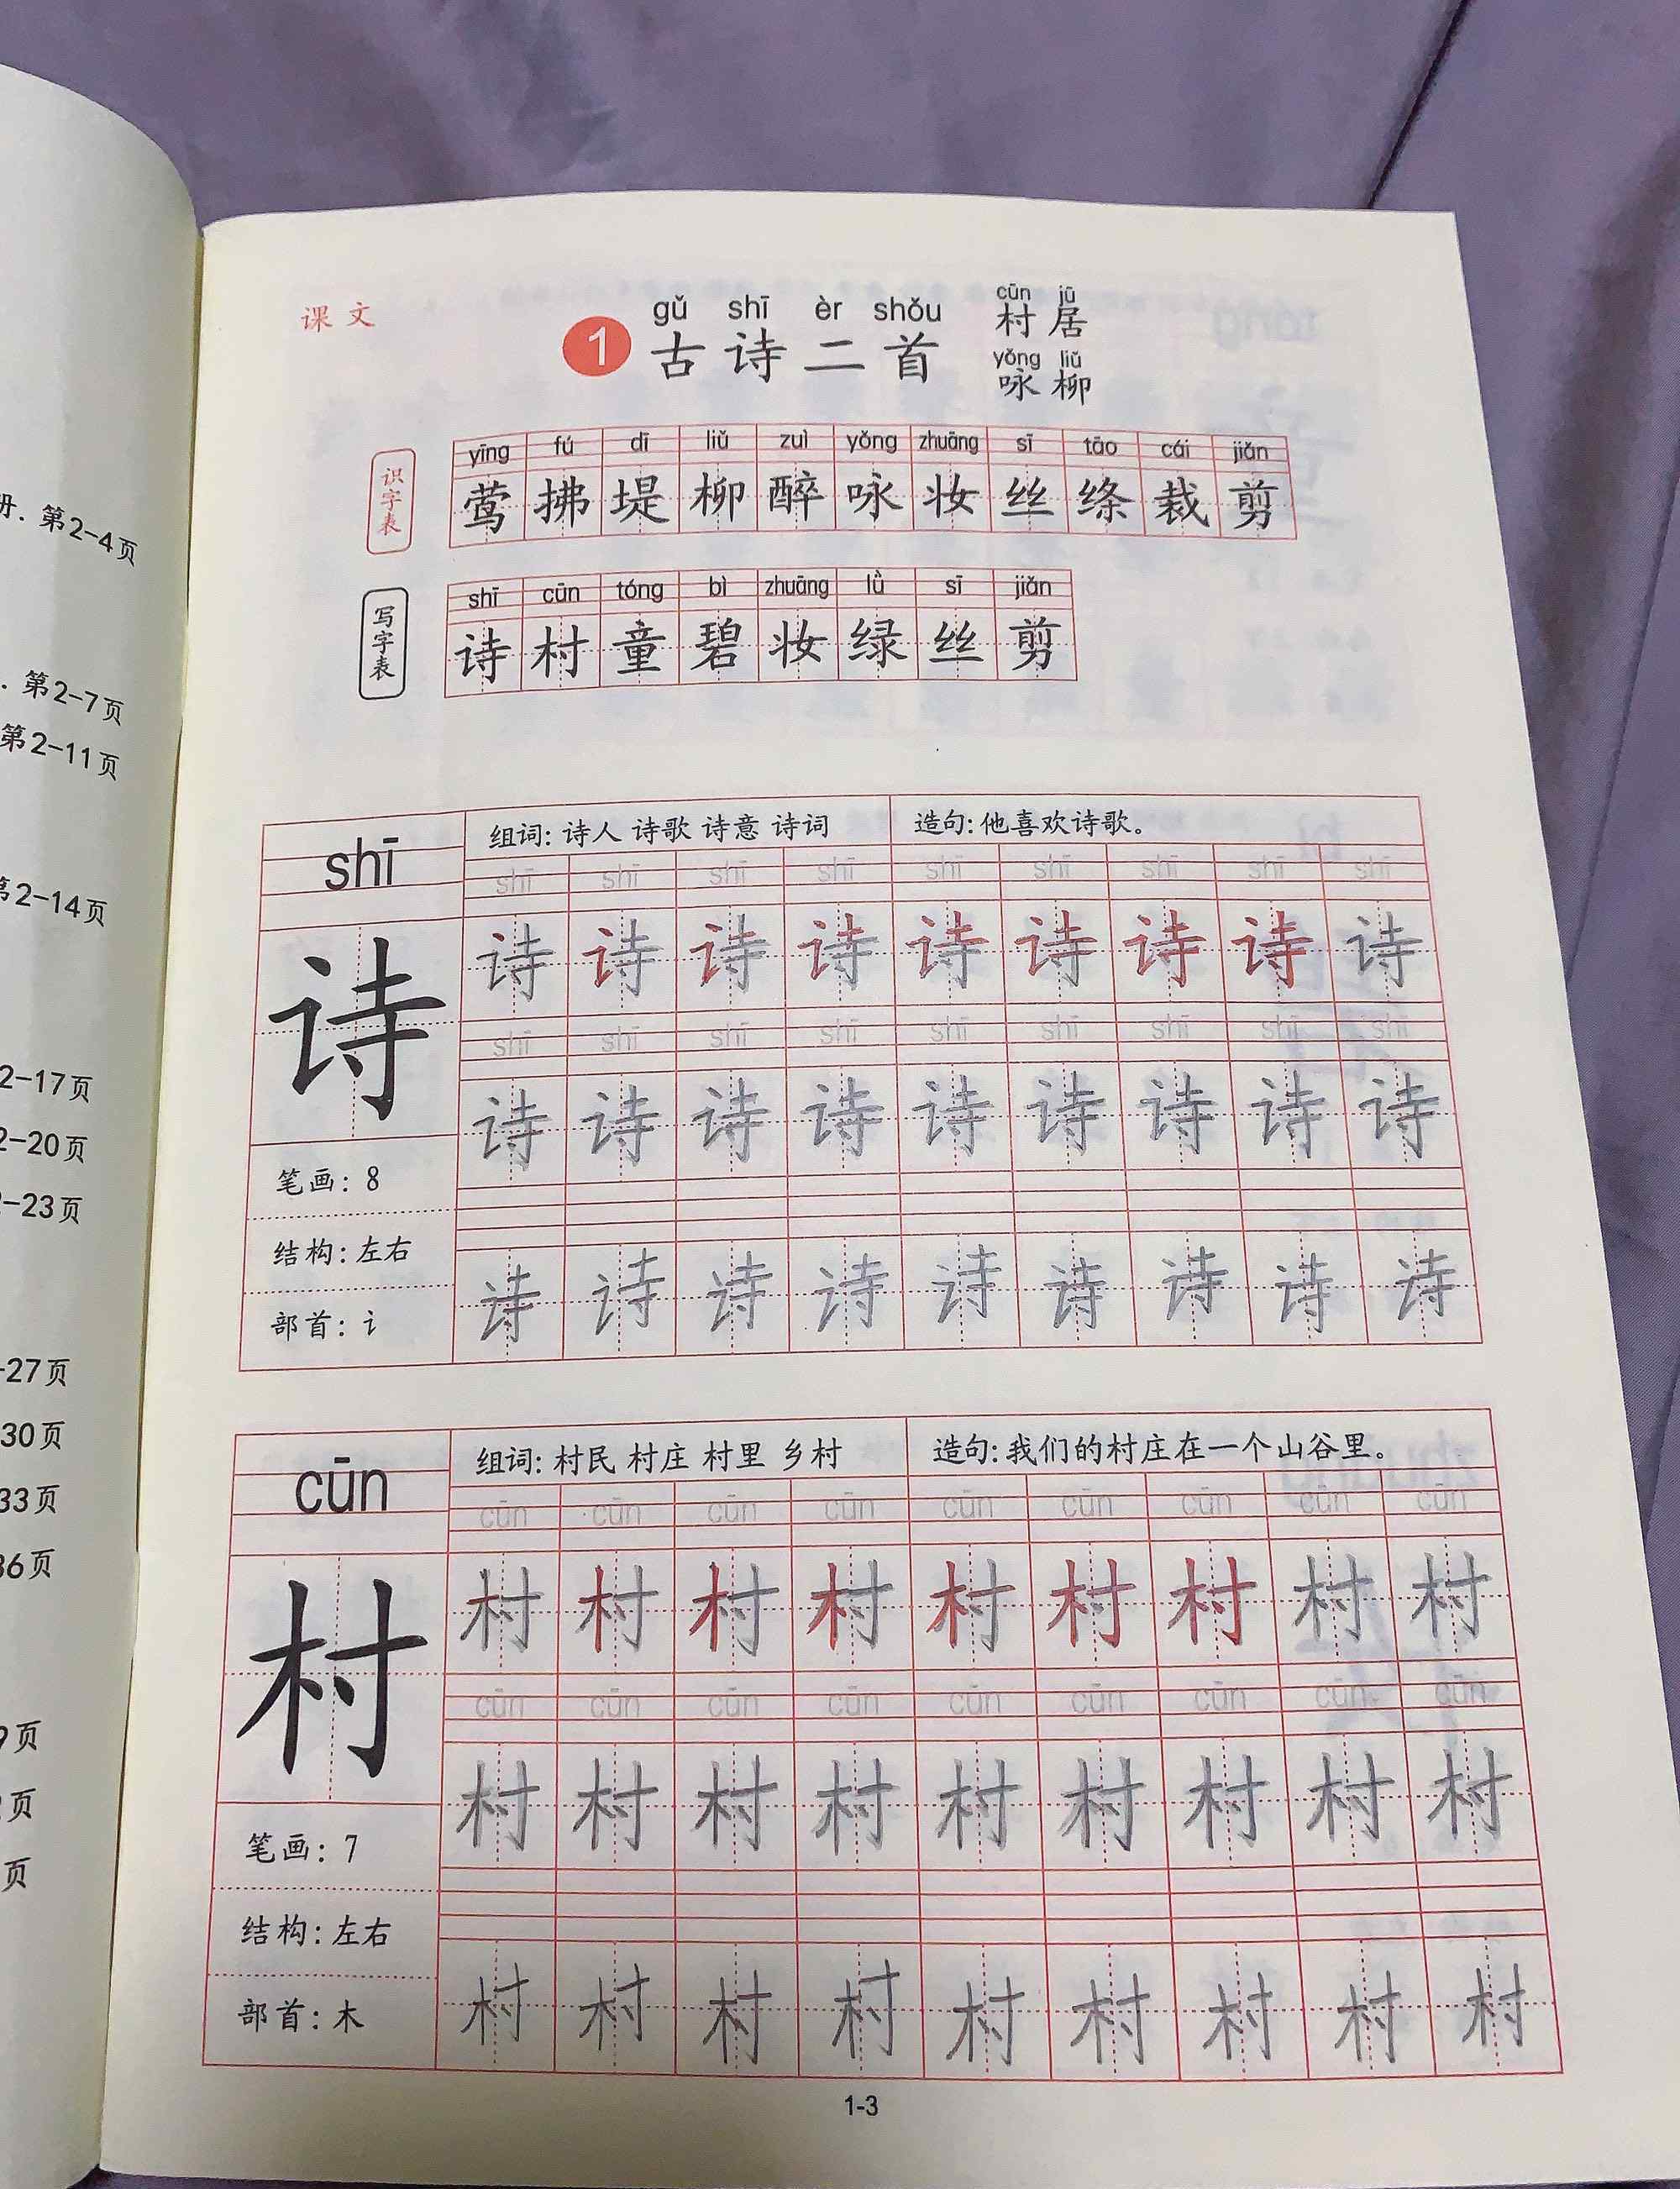 册. 第2-4页
. 第2-7页
第2-11页
第2-14页
2-17页
2-20页
2-23页
-27页
30页
33页
36页
9页
页
页
课文
gǔ shī èr shǒu
1 古诗二首
cūn jū
村居
yǒng liǔ
咏柳
识字表
yīng fú dī liǔ zuì yǒng zhuāng sī tāo cái jiǎn
莺 拂 堤 柳 醉 咏 妆 丝 绦 裁 剪
写字表
shī cūn tóng bì zhuāng lǜ sī jiǎn
诗 村 童 碧 妆 绿 丝 剪
shī
组词: 诗人 诗歌 诗意 诗词
造句: 他喜欢诗歌。
shī shī shī shī shī shī shī shī shī
诗
诗 诗 诗 诗 诗 诗 诗 诗 诗
shī shī shī shī shī shī shī shī shī
诗 诗 诗 诗 诗 诗 诗 诗 诗
笔画: 8
结构: 左右
诗 诗 诗 诗 诗 诗 诗 诗 诗
部首: 讠
cūn
组词: 村民 村庄 村里 乡村
造句: 我们的村庄在一个山谷里。
cūn cūn cūn cūn cūn cūn cūn cūn cūn
村
村 村 村 村 村 村 村 村 村
cūn cūn cūn cūn cūn cūn cūn cūn cūn
村 村 村 村 村 村 村 村 村
笔画: 7
结构: 左右
村 村 村 村 村 村 村 村 村
部首: 木
1-3